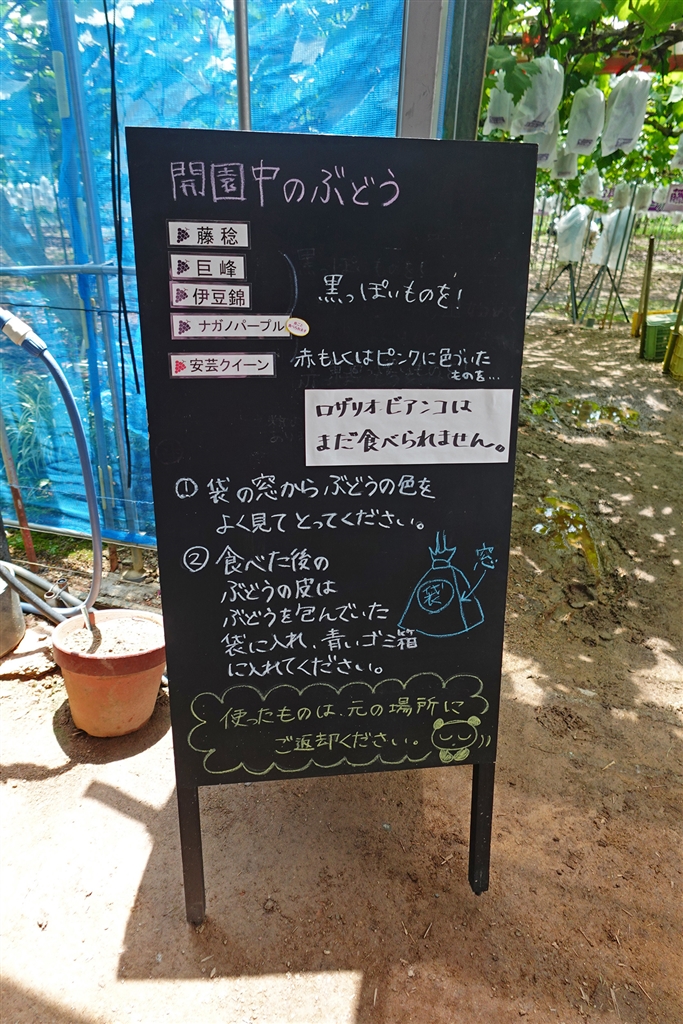 開園中のぶどう
藤稔
巨峰
伊豆錦
ナガノパープル
黒っぽいものを!
安芸クイーン
赤もしくはピンクに色づいた
ものを…
ロザリオ・ビアンコは
まだ食べられません。
① 袋の窓からぶどうの色を
よく見てとってください。
② 食べた後の
ぶどうの皮は
ぶどうを包んでいた
袋に入れ、青いゴミ箱
に入れてください。
窓
袋
使ったものは、元の場所に
ご返却ください。